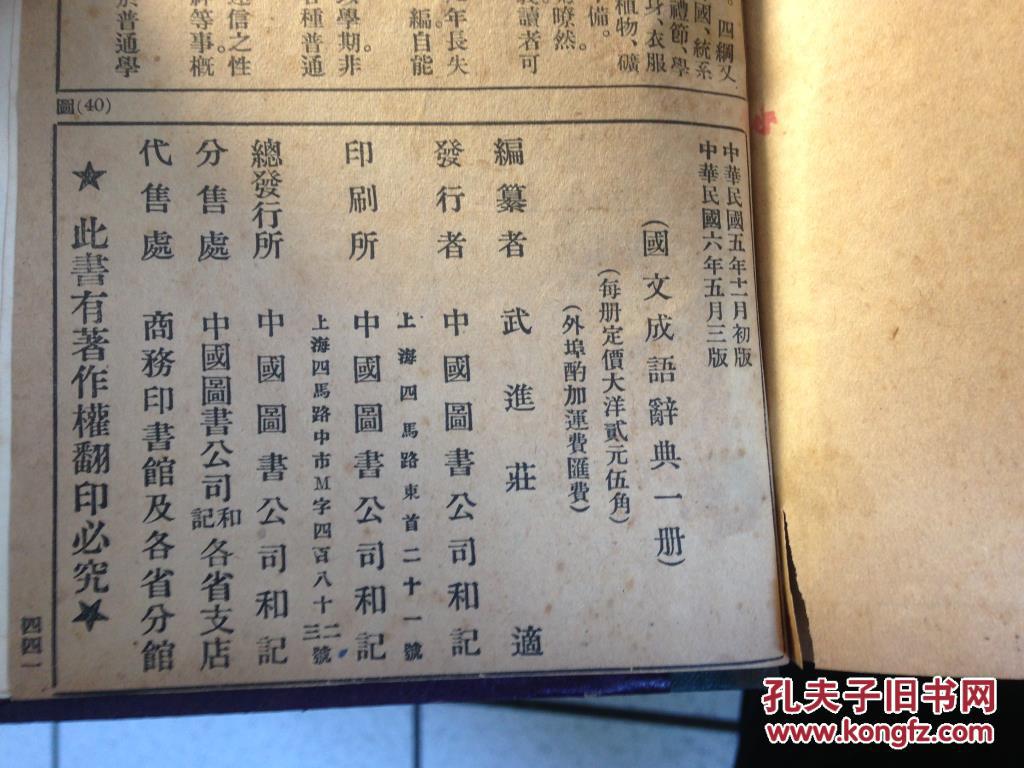 。四綱又
國、統系
禮節、學
身、衣服
植物、礦
備。
瞭然
讀者可
年長失
編自能。
學期非。
各種普通
迷信之性
神等事概。
於普通學
圖(40)
中華民國五年十二月初版
中華民國六年五月三版
(國文成語辭典一册)
(每册定價大洋貳元伍角)
(外埠酌加運費匯費)
編纂者 武進莊適
發行者 中國圖書公司和記
上海四馬路東首二十一號
印刷所 中國圖書公司和記
上海四馬路中市M字四百八十二三號
總發行所 中國圖書公司和記
分售處 中國圖書公司和記各省支店
代售處 商務印書館及各省分館
★此書有著作權翻印必究★
四四一
孔夫子旧书网
www.kongfz.com